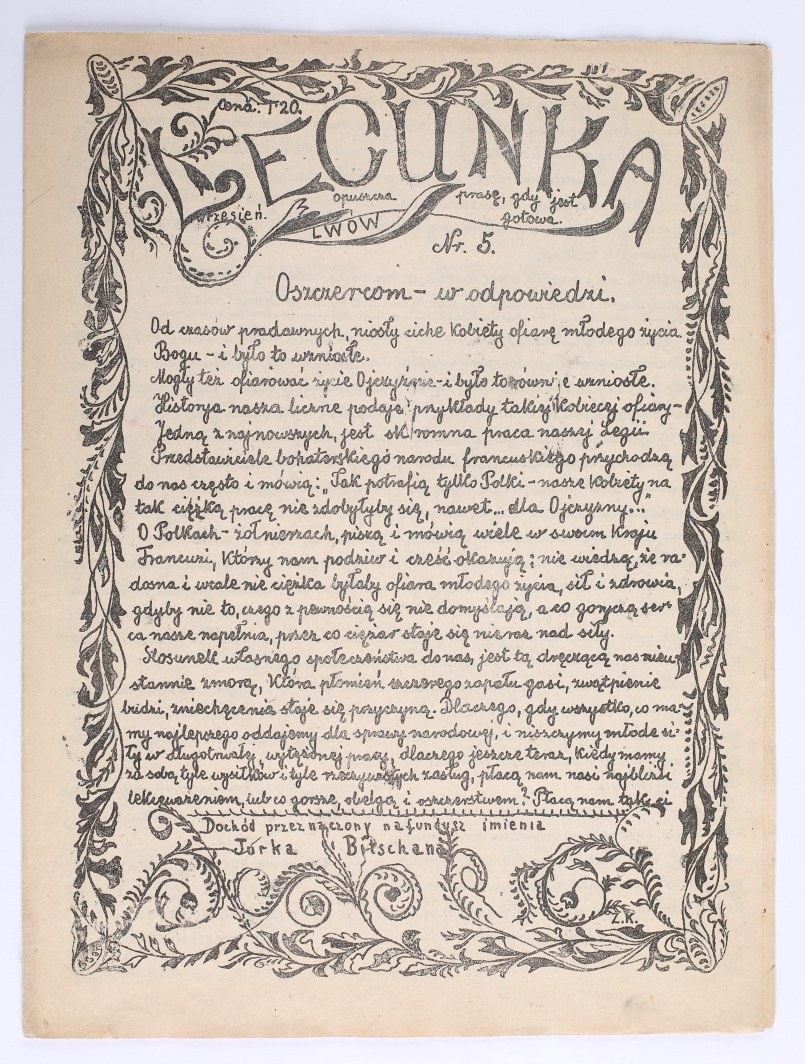 Cena: 1·20.
LEGUNKA
opuszcza prasę, gdy jest
wrzesień. LWÓW gotowa.
Nr. 5.
Oszczercom – w odpowiedzi.
Od czasów pradawnych, niosły ciche kobiety ofiarę młodego życia
Bogu – i było to wzniosłe.
Mogły też ofiarować życie Ojczyźnie – i było to równie wzniosłe.
Historja nasza liczne podaje przykłady takiej kobiecej ofiary –
Jedną z najnowszych, jest skromna praca naszej Legii.
Przedstawiciele bohaterskiego narodu francuskiego przychodzą
do nas często i mówią: „Tak potrafią tylko Polki – nasze kobiety na
tak ciężką pracę nie zdobyłyby się, nawet... dla Ojczyzny..."
O Polkach – żołnierzach, piszą i mówią wiele w swoim kraju
Francuzi, którzy nam podziw i cześć okazują; nie wiedzą, że ra-
dosna i wcale nie ciężka byłaby ofiara młodego życia, sił i zdrowia,
gdyby nie to, czego z pewnością się nie domyślają, a co goryczą ser-
ca nasze napełnia, przez co ciężar staje się nieraz nad siły.
Stosunek własnego społeczeństwa do nas, jest tą dręczącą nas nieu-
stannie zmorą, która płomień szczerego zapału gasi, zwątpienie
budzi, zniechęcenia staje się przyczyną. Dlaczego, gdy wszystko, co ma-
my najlepszego oddajemy dla sprawy narodowej, i niszczymy młode si-
ły w długotrwałej, wytężonej pracy, dlaczego jeszcze teraz, kiedy mamy
za sobą tyle wysiłków i tyle rzeczywistych zasług, płacą nam nasi najbliżsi
lekceważeniem, lub co gorsze, obelgą i oszczerstwem? Płacą nam tak ci
Dochód przeznaczony na fundusz imienia
Jurka Bitschana
Z.R.